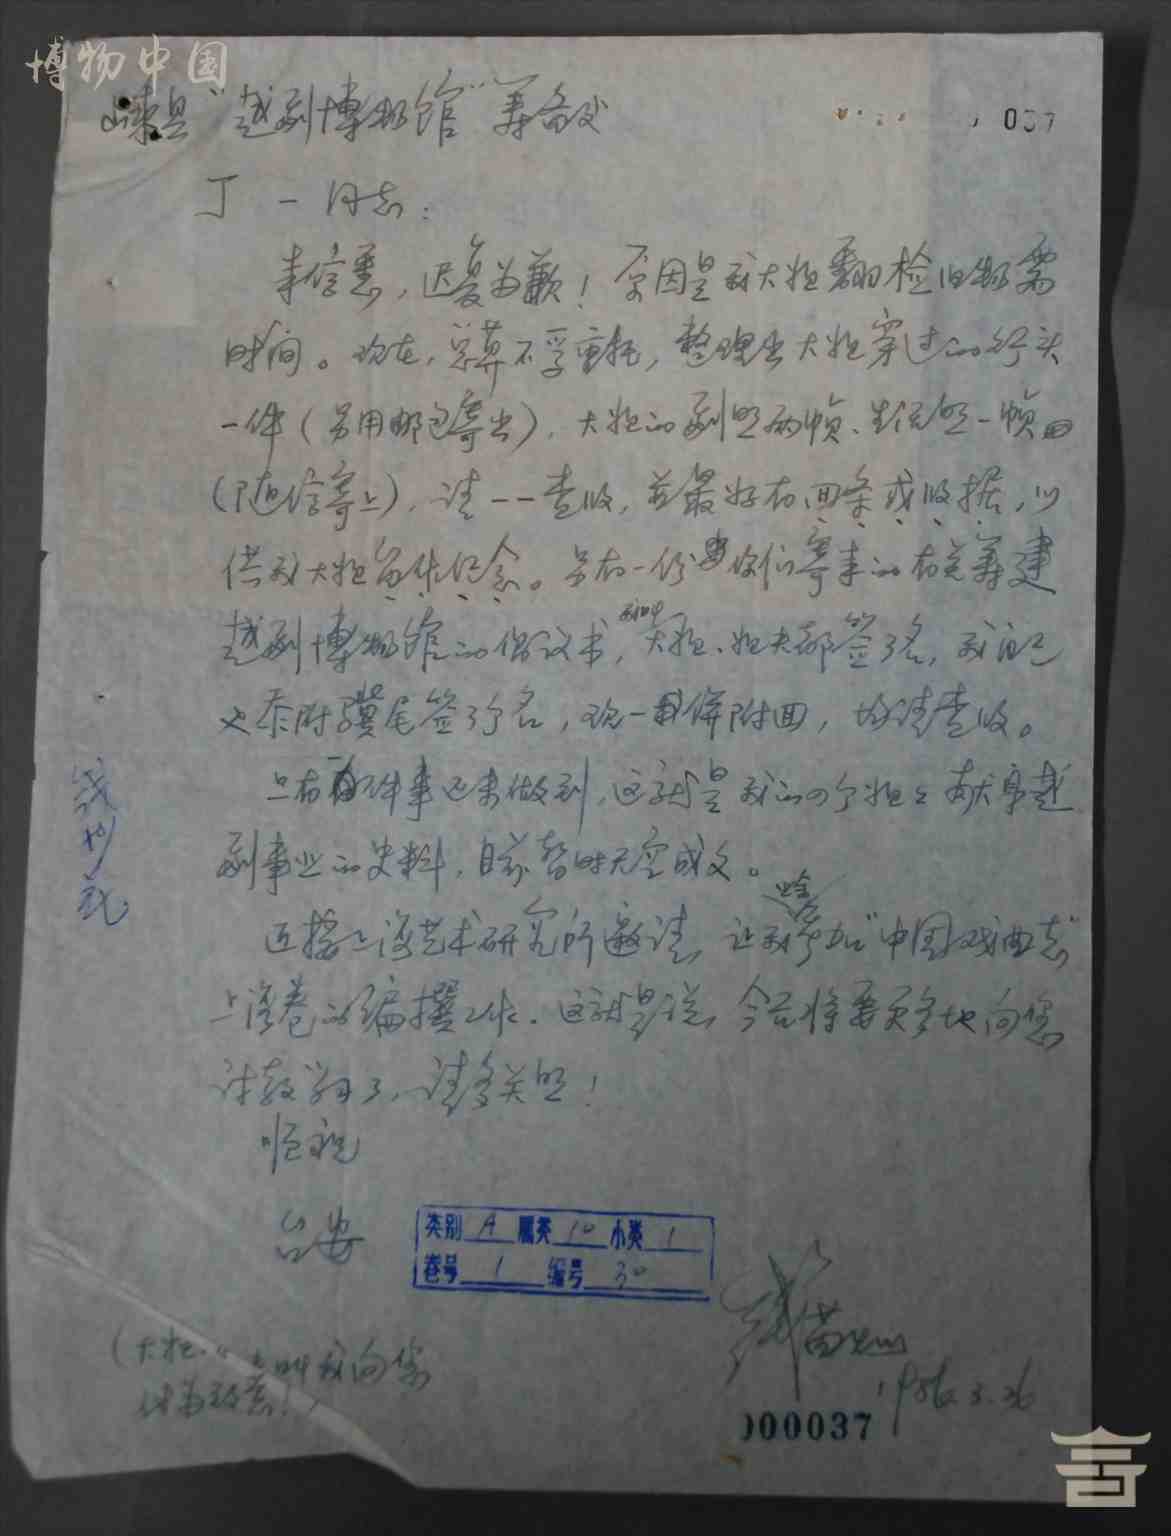 博物中国
嵊县"越剧博物馆"筹备处
037
丁一同志:
来信悉,迟复为歉!原因是我大姐翻检旧物需
时间。现在,总算不孚重托,整理出大姐穿过的行头
一件(另用邮包寄出),大姐的剧照两帧、生活照一帧
(随信寄上),请一一查收,并最好有回条或收据,以
供我大姐留作纪念。另有一份你们寄来的有关筹建
越剧博物馆的倡议书,大姐、姐夫都签了名,我自己
也忝附骥尾签了个名,现一併附回,均请查收。
只有一件事还未做到,这就是我的四个姐姐献身越
剧事业的史料,目前暂时无空成文。
近接上海艺术研究所邀请,让我参加"中国戏曲志"
上海卷的编撰工作。这就是说,今后将要更多地向您
讨教学习了,请多关照!
顺祝
台安
类别 A 属类 10 小类 1
卷号 1 编号 30
1986.3.26
000037
(大姐 叫我向您
代为致意!)